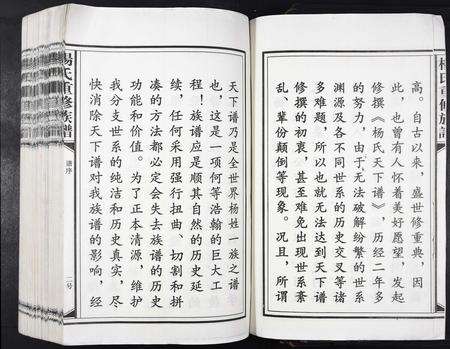 楊氏重修族譜
高。自古以来，盛世修重典，因
此，也曾有人怀着美好愿望，发起
修撰《杨氏天下谱》，历经二年多
的努力，由于无法破解纷繁的世系
渊源及各不同世系的历史交叉等诸
多难题，所以也就无法达到天下谱
修撰的初衷，甚至难免出现世系紊
乱、辈份颠倒等现象。况且，所谓
天下谱乃是全世界杨姓一族之谱
也，这是一项何等浩翰的巨大工
程！族谱应是顺其自然的历史延
续，任何采用强行扭曲、切割和拼
凑的方法都必定会失去族谱的历史
功能和价值。为了正本清源，维护
我分支世系的纯洁和历史真实，尽
快消除天下谱对我族谱的影响，经
楊氏重修族譜
谱序